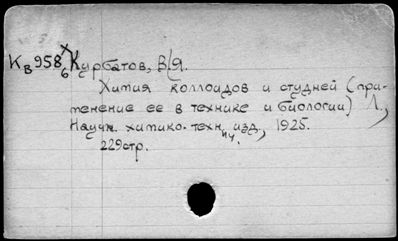 Кв958 Курбатов, В.Я.
Химия коллоидов и студней (при-
менение ее в технике и биологии) Л.,
Научн. химико-техн. изд., 1925.
229стр.